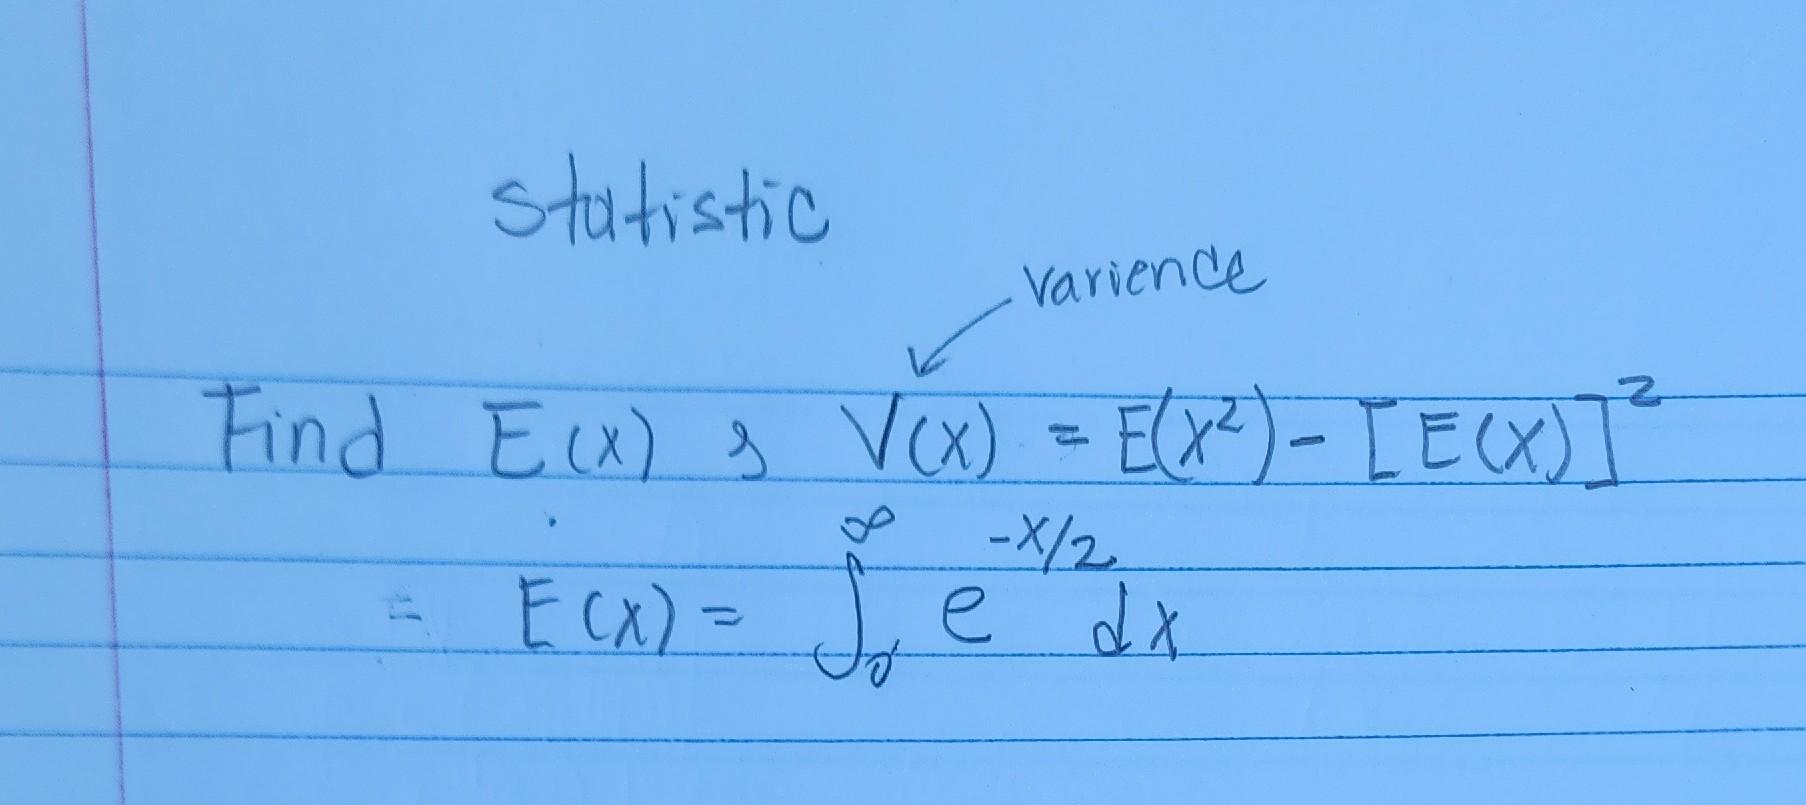 statistic
varience
Find E(x) & V(x) = E(x²) - [E(x)]²
= E(x) = ∫₀^∞ e^(-x/2) dx